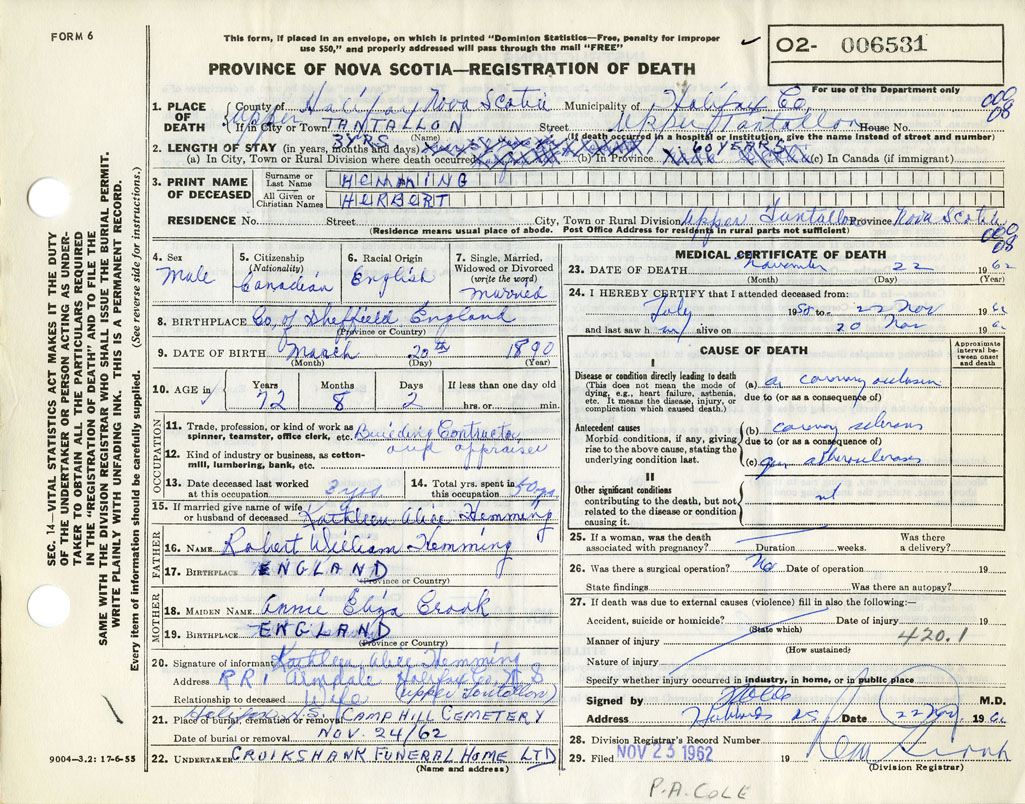 FORM 6
This form, if placed in an envelope, on which is printed "Dominion Statistics—Free, penalty for improper
use $50," and properly addressed will pass through the mail "FREE"
O2- 006531
PROVINCE OF NOVA SCOTIA—REGISTRATION OF DEATH
For use of the Department only
1. PLACE OF DEATH { County of Halifax Nova Scotia Municipality of Halifax Co.
Upper
If in City or Town TANTALLON Street Upper Tantallon House No.
(Name) (If death occurred in a hospital or institution, give the name instead of street and number)
2. LENGTH OF STAY (in years, months and days) 3YRS 60 YEARS
(a) In City, Town or Rural Division where death occurred (b) In Province (c) In Canada (if immigrant)
3. PRINT NAME OF DECEASED { Surname or Last Name HEMMING
All Given or Christian Names HERBERT
RESIDENCE No. Street City, Town or Rural Division Upper Tantallon Province Nova Scotia
(Residence means usual place of abode. Post Office Address for residents in rural parts not sufficient)
4. Sex Male
5. Citizenship (Nationality) Canadian
6. Racial Origin English
7. Single, Married, Widowed or Divorced (write the word) Married
8. BIRTHPLACE Co. of Sheffield England
(Province or Country)
9. DATE OF BIRTH March 20th 1890
(Month) (Day) (Year)
10. AGE Years 72 Months 8 Days 2 If less than one day old hrs. or min.
OCCUPATION
11. Trade, profession, or kind of work as spinner, teamster, office clerk, etc. Building Contractor
and appraiser
12. Kind of industry or business, as cotton-mill, lumbering, bank, etc.
13. Date deceased last worked at this occupation 2 yrs
14. Total yrs. spent in this occupation 50 yrs.
15. If married give name of wife or husband of deceased Kathleen Alice Hemming
FATHER
16. NAME Robert William Hemming
17. BIRTHPLACE ENGLAND
(Province or Country)
MOTHER
18. MAIDEN NAME Annie Eliza Crook
19. BIRTHPLACE ENGLAND
(Province or Country)
20. Signature of informant Kathleen Alice Hemming
Address R R 1 Armdale Halifax Co. N S
Relationship to deceased Wife (Upper Tantallon)
21. Place of burial, cremation or removal Halifax N.S. CAMP HILL CEMETERY
Date of burial or removal NOV. 24/62
22. UNDERTAKER CRUIKSHANK FUNERAL HOME LTD
(Name and address)
MEDICAL CERTIFICATE OF DEATH
23. DATE OF DEATH November 22 1962
(Month) (Day) (Year)
24. I HEREBY CERTIFY that I attended deceased from:
July 1958 to 22 Nov 1962
and last saw him alive on 20 Nov 1962
CAUSE OF DEATH
Approximate interval between onset and death
I
Disease or condition directly leading to death
(This does not mean the mode of dying, e.g., heart failure, asthenia, etc. It means the disease, injury, or complication which caused death.)
(a) coronary occlusion
due to (or as a consequence of)
Antecedent causes
Morbid conditions, if any, giving rise to the above cause, stating the underlying condition last.
(b) coronary sclerosis
due to (or as a consequence of)
(c) gen atherosclerosis
II
Other significant conditions
contributing to the death, but not related to the disease or condition causing it.
nil
25. If a woman, was the death associated with pregnancy? Duration weeks. Was there a delivery?
26. Was there a surgical operation? No Date of operation 19
State findings Was there an autopsy?
27. If death was due to external causes (violence) fill in also the following:—
Accident, suicide or homicide? Date of injury 19
(State which)
Manner of injury 420.1
(How sustained)
Nature of injury
Specify whether injury occurred in industry, in home, or in public place
Signed by M.D.
Address Hubbards NS Date 22 Nov 1962
28. Division Registrar's Record Number
29. Filed NOV 23 1962 19
(Division Registrar)
P.A. COLE
SEC. 14—VITAL STATISTICS ACT MAKES IT THE DUTY
OF THE UNDERTAKER OR PERSON ACTING AS UNDER-
TAKER TO OBTAIN ALL THE PARTICULARS REQUIRED
IN THE "REGISTRATION OF DEATH" AND TO FILE THE
SAME WITH THE DIVISION REGISTRAR WHO SHALL ISSUE THE BURIAL PERMIT.
WRITE PLAINLY WITH UNFADING INK. THIS IS A PERMANENT RECORD.
Every item of information should be carefully supplied. (See reverse side for instructions.)
9004—3.2: 17-6-55